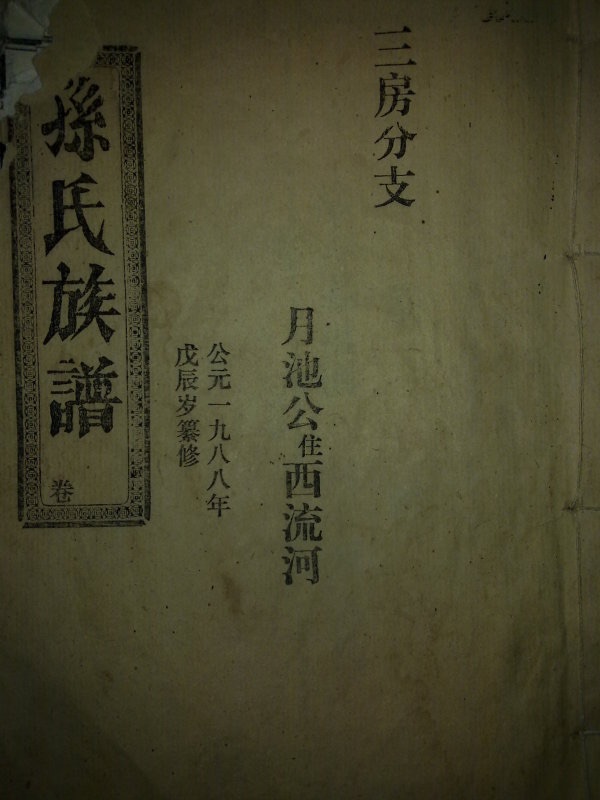 三房分支
月池公住西流河
公元一九八八年
戊辰岁纂修
孫氏族譜
卷